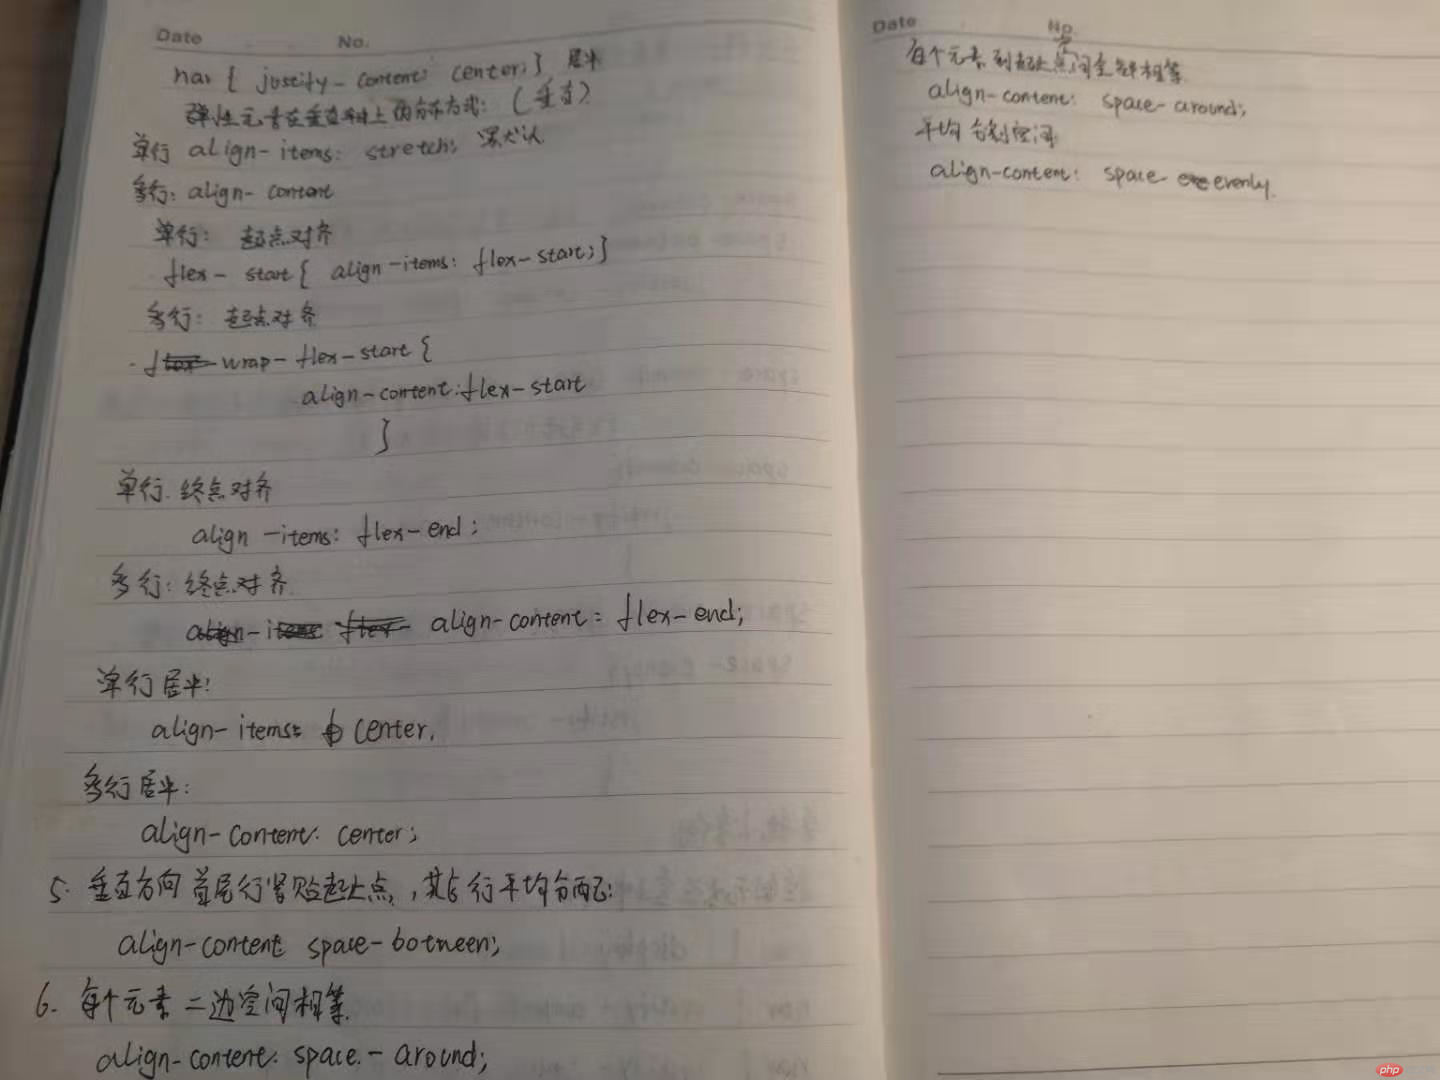 Date No.
nav { justify-content: center; } 居中
弹性元素在垂直轴上的分布方式: (垂直)
单行 align-items: stretch; 默认
多行: align-content
单行: 起点对齐
flex-start { align-items: flex-start; }
多行: 起点对齐
wrap-flex-start {
align-content: flex-start
}
单行. 终点对齐
align-items: flex-end;
多行: 终点对齐.
align-content: flex-end;
单行居中:
align-items: center.
多行居中:
align-content: center;
5. 垂直方向 首尾行紧贴起止点, 其它行平均分配:
align-content space-botween;
6. 每个元素二边空间相等.
align-content: space-around;
Date No.
每个元素到起止点间 相等.
align-content: space-around;
平均 空间:
align-content: space evenly.
php